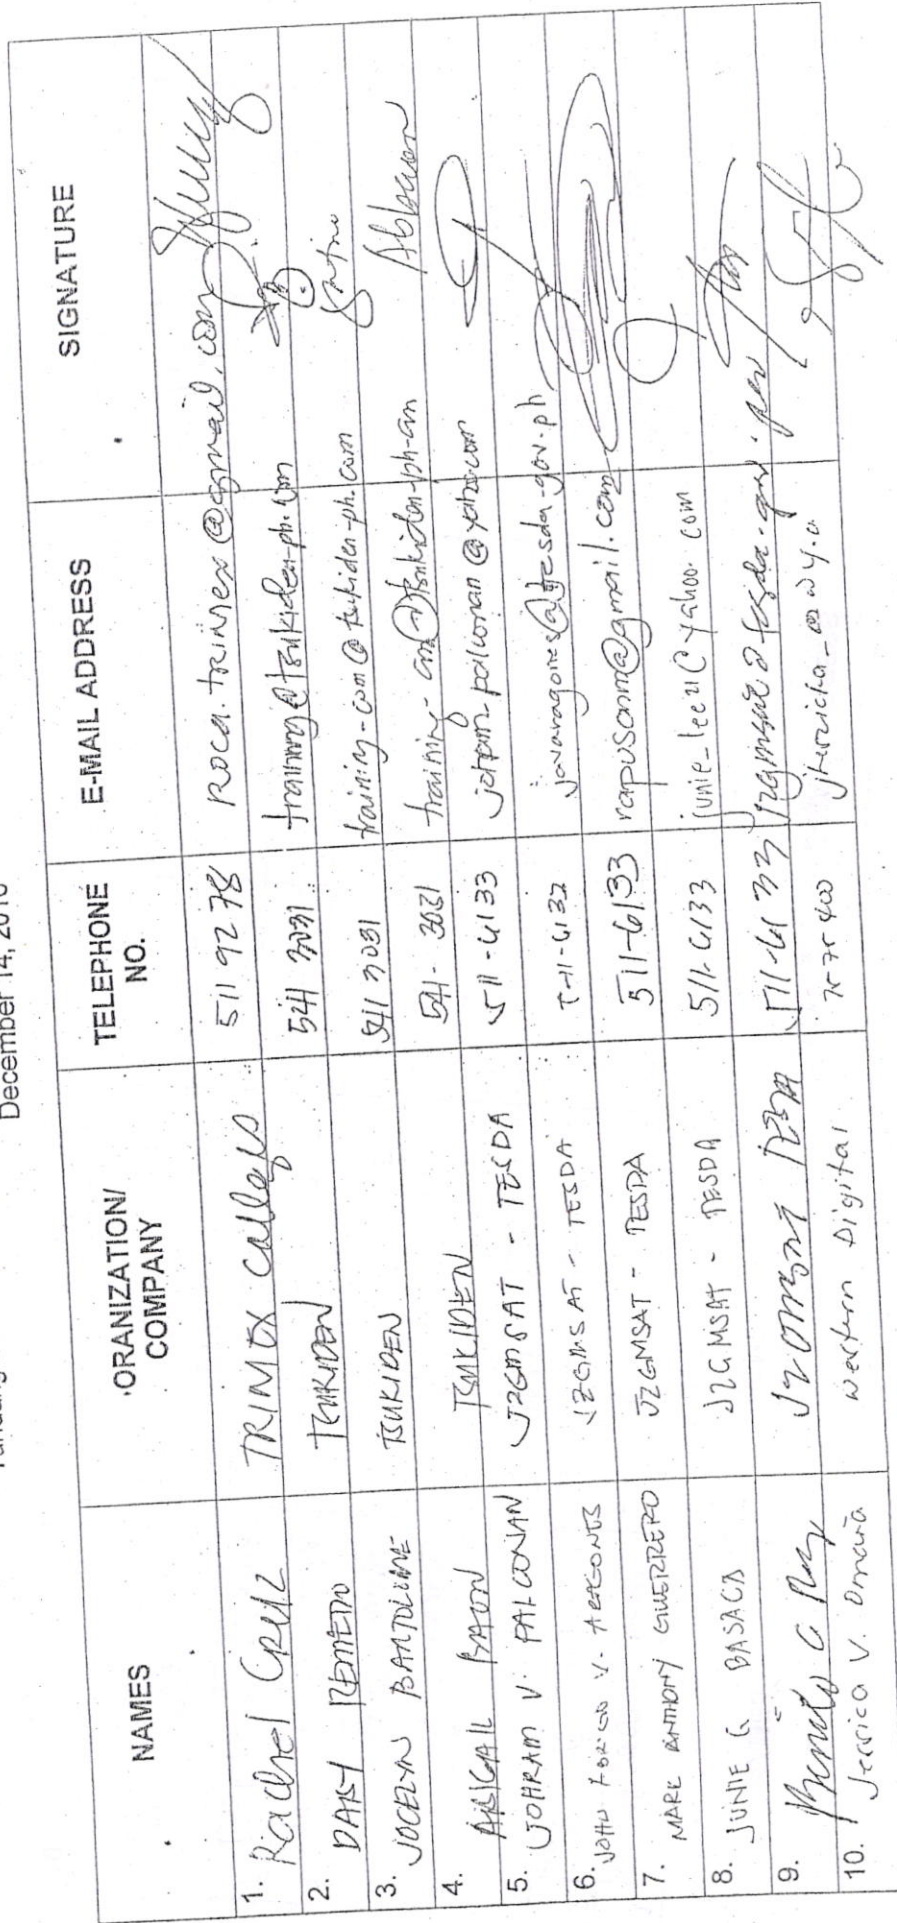 December 14, 2016
NAMES ORANIZATION/ COMPANY TELEPHONE NO. E-MAIL ADDRESS SIGNATURE
1. Rachel Cruz TRIMEX Colleges 511 9278 roca.trimex@gmail.com
2. DAISY REMEDIO TSUKIDEN 541 3031 training@tsukiden-ph.com
3. JOCELYN BARTOLOME TSUKIDEN 541 3031 training-com@tsukiden-ph.com
4. ABIGAIL BACON TSUKIDEN 541-3031 training-
5. JOHRAM V. PALCONAN JZGMSAT - TESDA 511-6133 johram_palconan@yahoo.com
6. JOHN V. ARAGONES JZGMSAT - TESDA 511-6133 javaragones@tesda.gov.ph
7. MARK ANTHONY GUERRERO JZGMSAT - TESDA 511-6133 rapusanm@gmail.com
8. JUNIE G BASACA JZGMSAT - TESDA 511-6133 junie_lee21@yahoo.com
9. 511-6133
10. Jerrica V. Omaña Western Digital